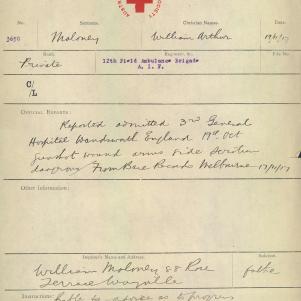 AUST
SOCIETY
No.
Surname.
Christian Names.
Date.
3650
Maloney
William Arthur
19/11/17
Rank.
Regiment, &c.
Private
12th Field Ambulance Brigade
A. I. F.
C/
/L
OFFICIAL REPORTS:
Reported admitted 3rd General
Hospital Wandswath England 19th Oct
gunshot wound arms side
dangerous From Base Records Melbourne 17/11/17
Other Information:
Inquirer's Name and Address.
William Maloney 88 Rose
Terrace Wayville
father
Instructions:
to progress